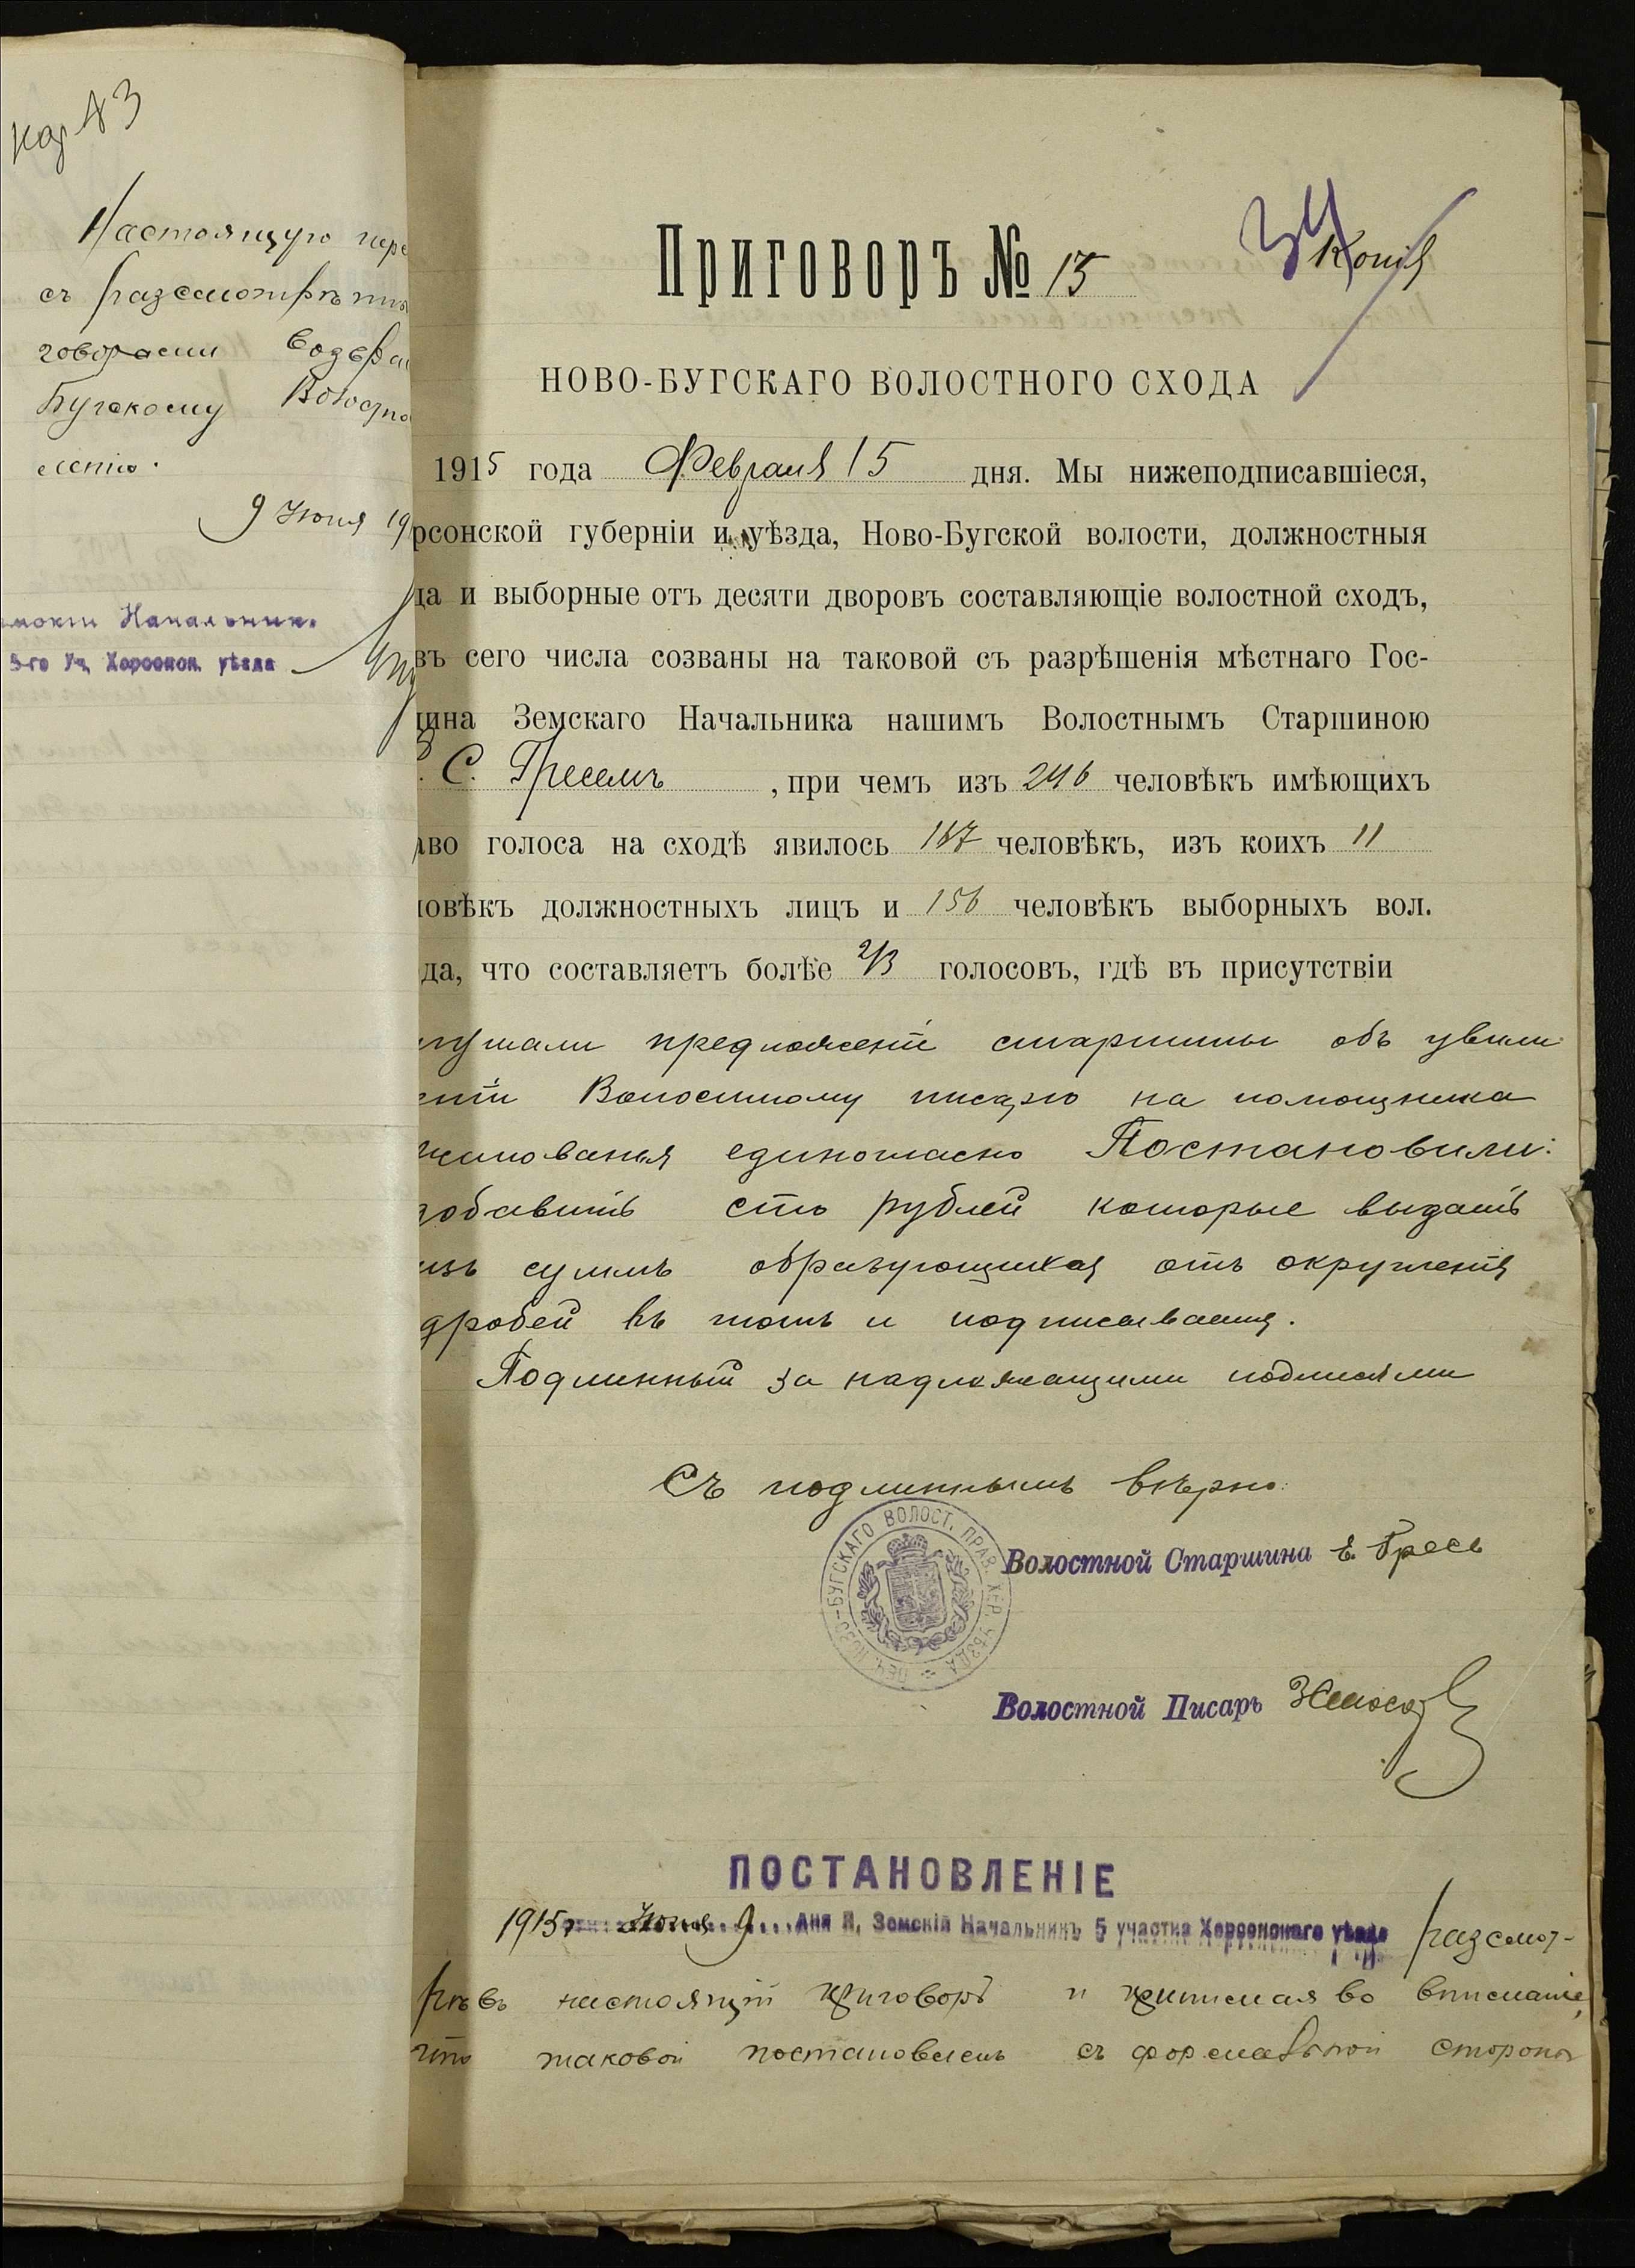 Настоящую пере
съ разсмотрѣнны
говорами
Бугскому Волостно
9 Июня 19
Земскій Начальникъ
5-го Уч. Херсонск. уѣзда
34
Копія
Приговоръ № 15
НОВО-БУГСКАГО ВОЛОСТНОГО СХОДА
1915 года Февраля 15 дня. Мы нижеподписавшіеся,
рсонской губерніи и уѣзда, Ново-Бугской волости, должностныя
ца и выборные отъ десяти дворовъ составляющіе волостной сходъ,
въ сего числа созваны на таковой съ разрѣшенія мѣстнаго Гос-
дина Земскаго Начальника нашимъ Волостнымъ Старшиною
С. Гресемъ, при чемъ изъ 246 человѣкъ имѣющихъ
аво голоса на сходѣ явилось 167 человѣкъ, изъ коихъ 11
ловѣкъ должностныхъ лицъ и 156 человѣкъ выборныхъ вол.
да, что составляетъ болѣе 2/3 голосовъ, гдѣ въ присутствіи
слушали предложеніе старшины объ увели
еніи Волостному писарю на помощника
жалованья единогласно Постановили:
добавить сто рублей которые выдать
изъ суммъ образующихся отъ округленія
дробей въ томъ и подписываемся.
Подлинный за надлежащими подписями
Съ подлиннымъ вѣрно:
ПЕЧ. НОВО-БУГСКАГО ВОЛОСТ. ПРАВ. ХЕР. УѢЗДА
Волостной Старшина Е. Гресь
Волостной Писарь
ПОСТАНОВЛЕНІЕ
1915 г. Июня 9 дня Я, Земскій Начальникъ 5 участка Херсонскаго уѣзда разсмот-
рѣвъ настоящій приговоръ и принимая во вниманіе,
что таковой постановленъ съ формальной стороны